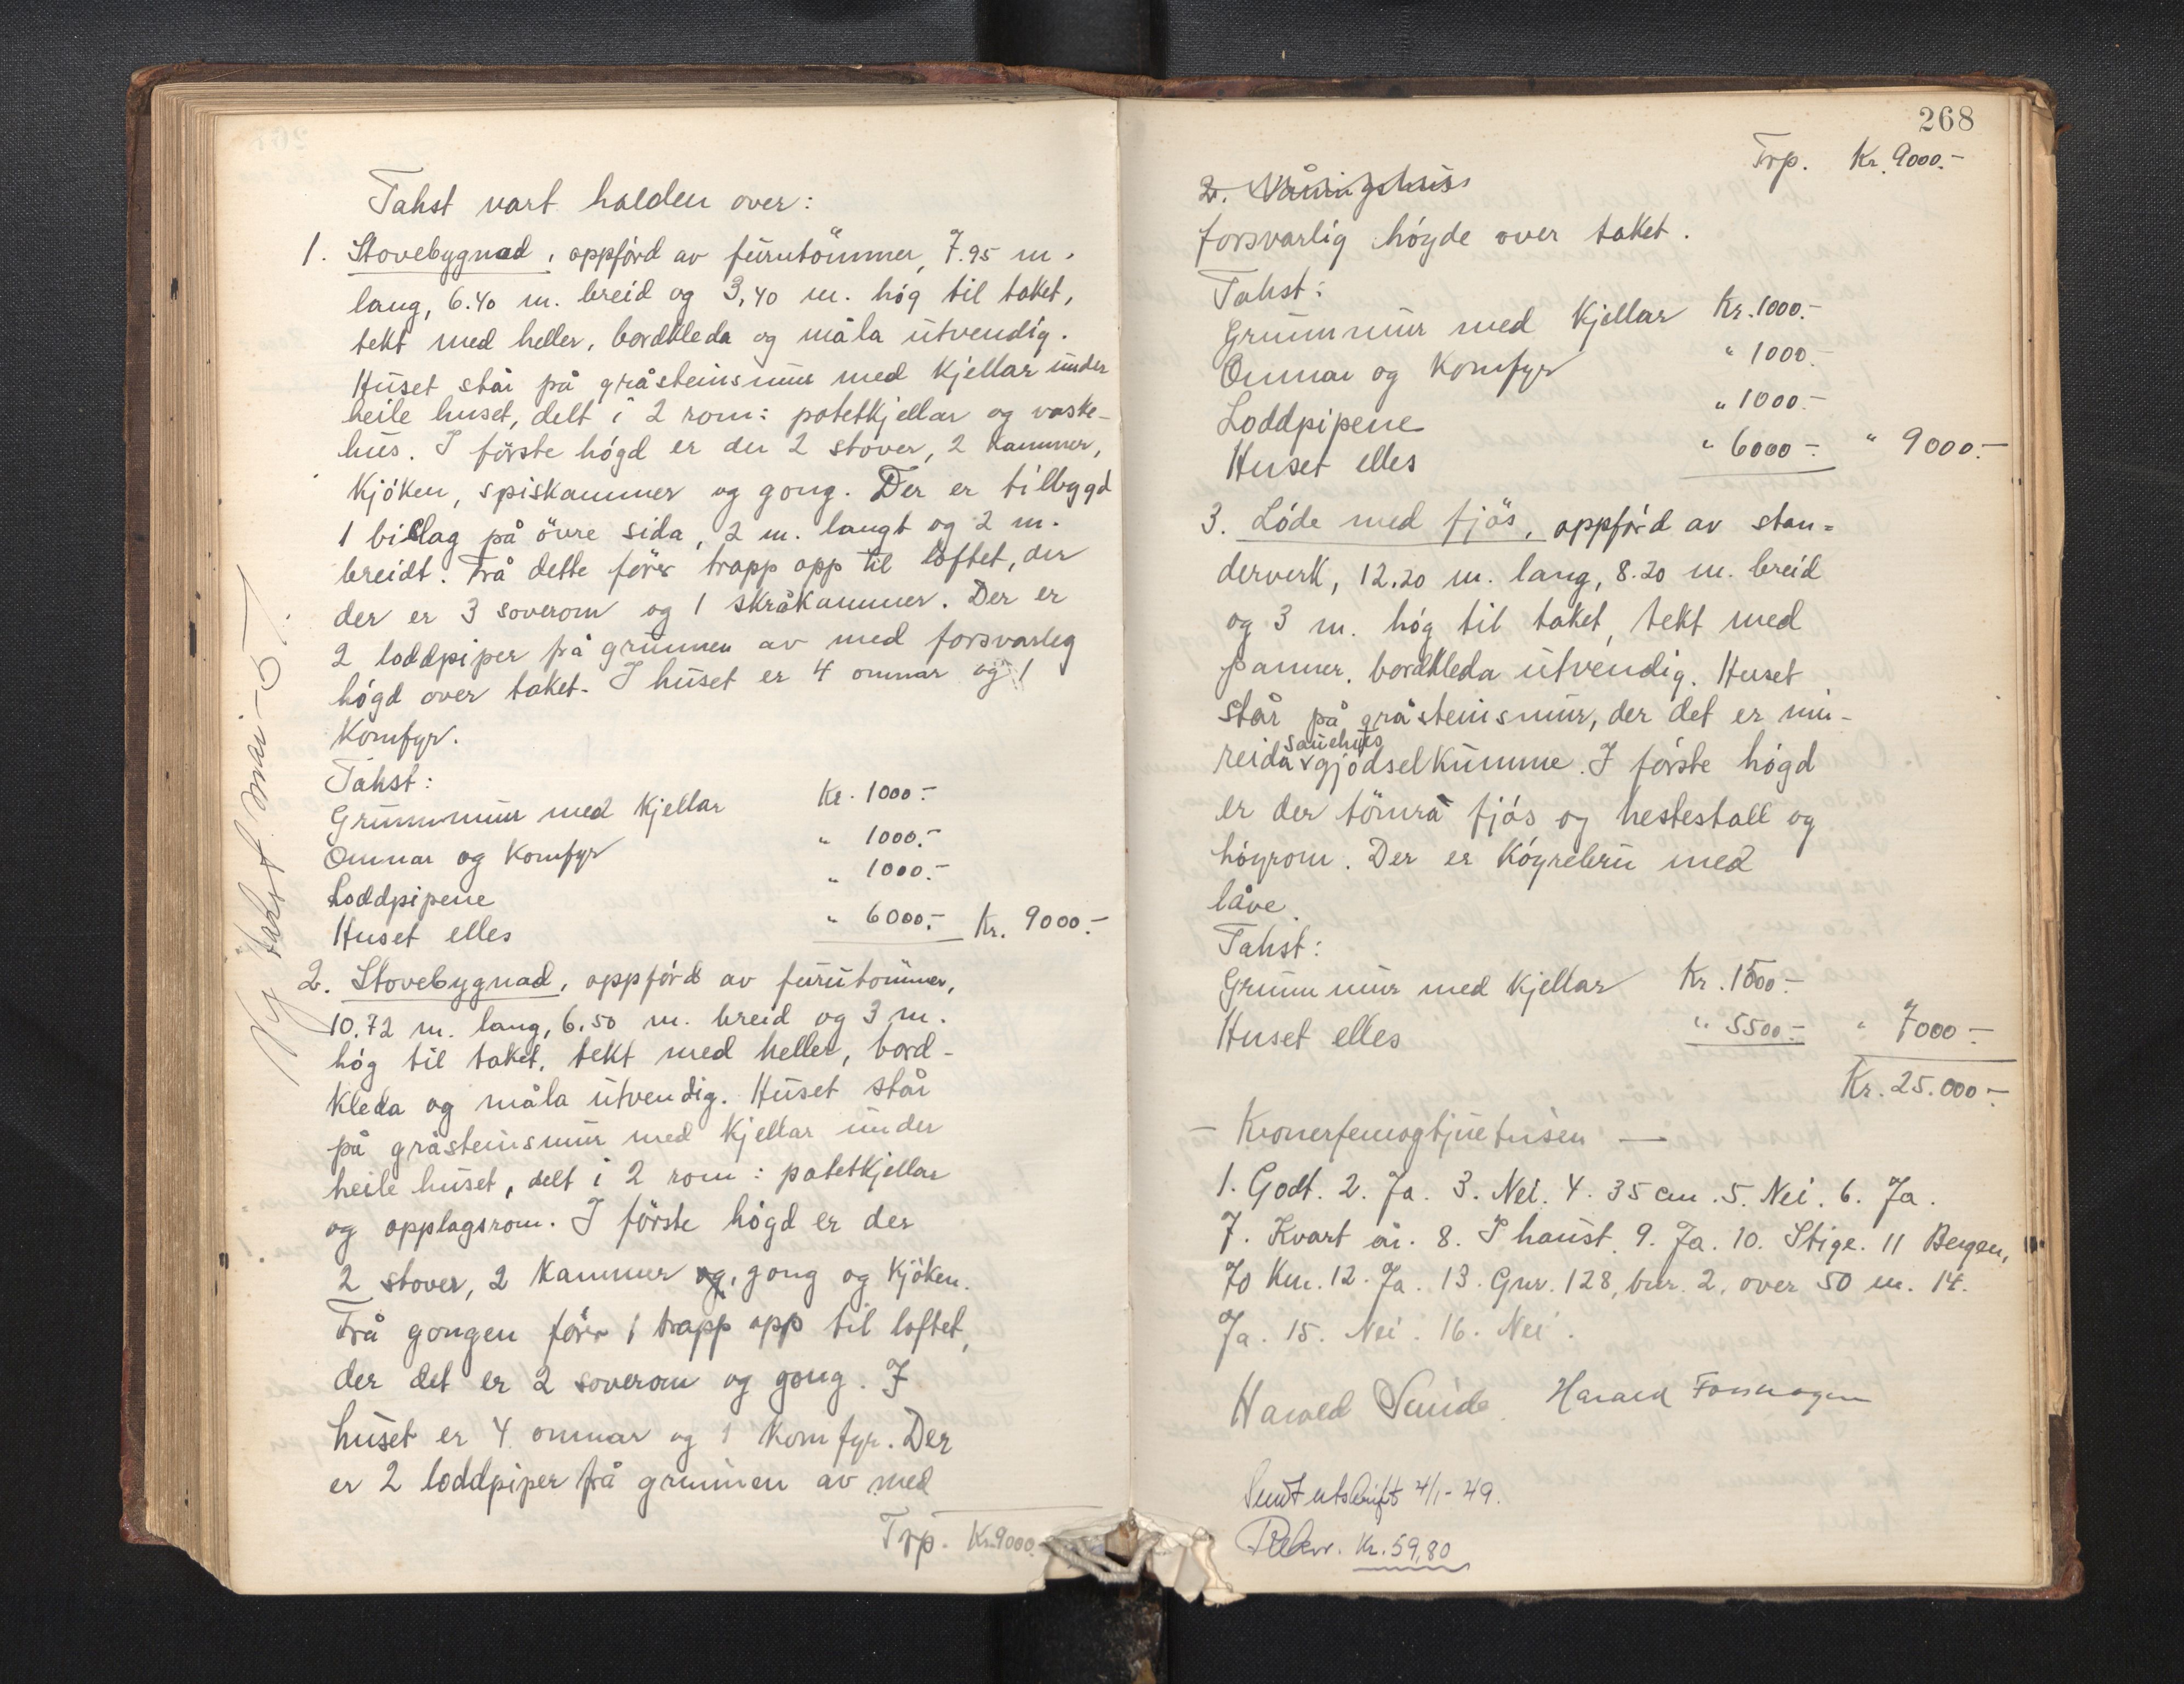 Takst vart halden over:
1. Stovebygnad, oppförd av furutömmer, 7.95 m.
lang, 6.40 m. breid og 3,40 m. hög til taket,
tekt med heller, bordkleda og måla utvendig.
Huset står på gråsteinsmur med kjellar under
heile huset, delt i 2 rom: potetkjellar og vaske-
hus. I förste högd er der 2 stover, 2 kammer,
kjöken, spiskammer og gong. Der er tilbygd
1 bislag på övre sida, 2 m. langt og 2 m.
breidt. Frå dette förer trapp opp til loftet, der
der er 3 soverom og 1 skråkammer. Der er
2 loddpiper frå grunnen av med forsvarleg
högd over taket. I huset er 4 omnar og 1
komfyr.
Takst:
Grunnmur med kjellar Kr. 1000.-
Omnar og komfyr " 1000.-
Loddpipene " 1000.-
Huset elles " 6000.- Kr. 9000.-
2. Stovebygnad, oppförd av furutömmer,
10.72 m. lang, 6.50 m. breid og 3 m.
hög til taket, tekt med heller, bord-
kleda og måla utvendig. Huset står
på gråsteinsmur med kjellar under
heile huset, delt i 2 rom: potetkjellar
og opplagsrom. I förste högd er der
2 stover, 2 kammer og, gong og kjöken.
Frå gongen förer 1 trapp opp til loftet,
der det er 2 soverom og gong. I
huset er 4 omnar og 1 komfyr. Der
er 2 loddpiper frå grunnen av med
Trp. Kr. 9000.-
Ny takst mai-57.
268
Trp. Kr. 9000.-
2. Våningshus
forsvarlig högde over taket.
Takst:
Grunnmur med kjellar Kr. 1000.-
Omnar og komfyr " 1000.-
Loddpipene " 1000.-
Huset elles " 6000.- " 9000.-
3. Löde med fjös, oppförd av stan-
derverk, 12.20 m. lang, 8.20 m. breid
og 3 m. hög til taket, tekt med
panner, bordkleda utvendig. Huset
står på gråsteinsmur, der det er inn-
sauehus
reida gjödselkumme. I förste högd
er der tömra fjös og hestestall og
höyrom. Der er köyrebru med
låve.
Takst:
Grunnmur med kjellar Kr. 1500.-
Huset elles " 5500.- " 7000.-
Kr. 25.000.-
- Kronerfemogtjuetusen -
1. Godt. 2. Ja. 3. Nei. 4. 35 cm. 5. Nei. 6. Ja.
7. Kvart år. 8. I haust. 9. Ja. 10. Stige. 11 Bergen,
70 km. 12. Ja. 13. Gnr. 128, bnr. 2, over 50 m. 14.
Ja. 15. Nei. 16. Nei.
Harald Sunde. Harald
Sendt utskrift 4/1-49.
Rekv. kr. 59,80